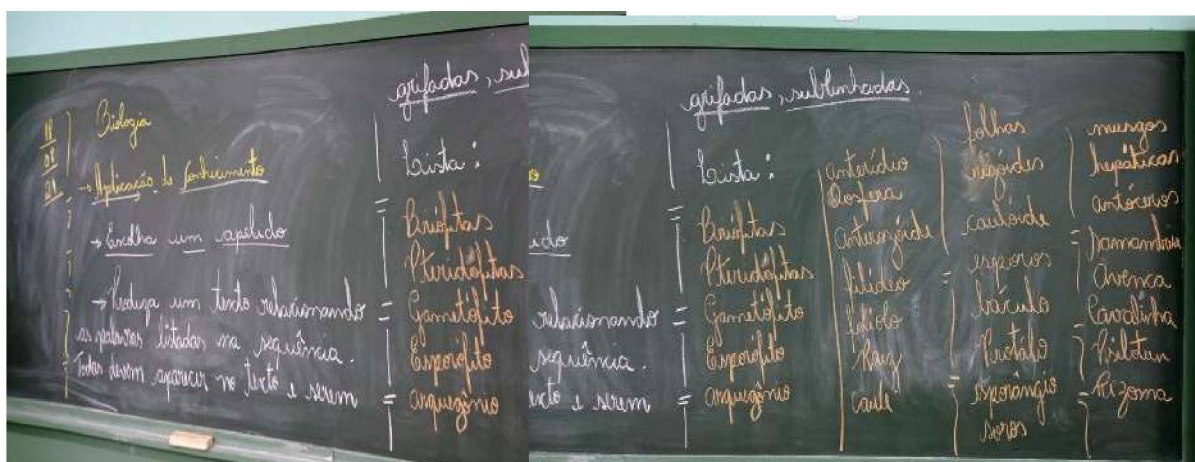 18
08
21
Biologia
→ Aplicação de Conhecimento
→ Escolha um apelido
→ Produza um texto relacionando
as palavras listadas na sequência.
Todas devem aparecer no texto e serem
grifadas, sub
Lista:
Briófitas
Pteridófitas
Gametófito
Esporófito
arquegônio
grifadas, sublinhadas.
Lista:
Briófitas
Pteridófitas
Gametófito
Esporófito
arquegônio
o
ido
relacionando
sequência.
exto e serem
anterídio
Oosfera
Anterozóide
filídeo
folíolo
Raiz
Caule
folhas
rizóides
caulóide
esporos
báculo
Protalo
esporângio
soros
musgos
hepáticas
antóceros
Samambaia
Avenca
Cavalinha
Psilotum
Rizoma